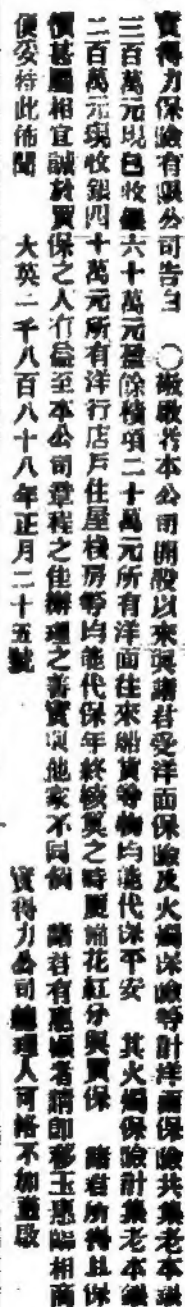 寶得力保險有限公司告白　○敬啟者本公司開設以來與諸君受洋面保險及火燭保險等計洋面保險共集老本銀
三百萬元現已收銀六十萬元盈餘積項二十萬元所有洋面往來船貨等物均能代保平安　其火燭保險計集老本銀
二百萬元現收銀四十萬元所有洋行店戶住屋棧房等均能代保年終核算之時更當花紅分與買保　諸君所特且保
價甚屬相宜誠於買保之人有益至本公司章程之佳辦理之善實與他家不同倘　諸君有惠顧者請即移玉惠臨相商
便妥特此佈聞　大英一千八百八十八年正月二十五號　寶得力公司總理人可格不加啟